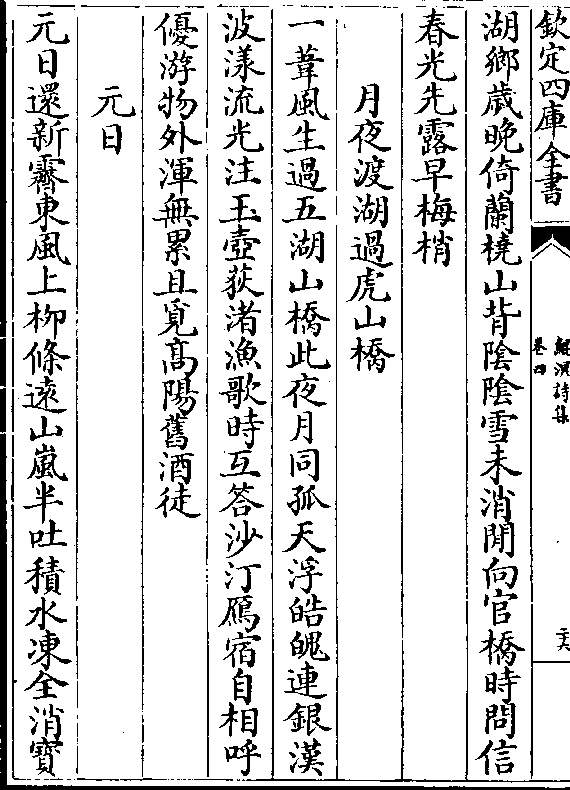 欽定四庫全書
鯤溟詩集
卷四
二六
湖鄉歲晚倚蘭橈山背陰陰雪未消閒向官橋時問信
春光先露早梅梢
月夜渡湖過虎山橋
一葦風生過五湖山橋此夜月同孤天浮皓魄連銀漢
波漾流光注玉壺荻渚漁歌時互答沙汀鴈宿自相呼
優游物外渾無累且覓髙陽舊酒徒
元日
元日還新霽東風上柳條遠山嵐半吐積水凍全消寳